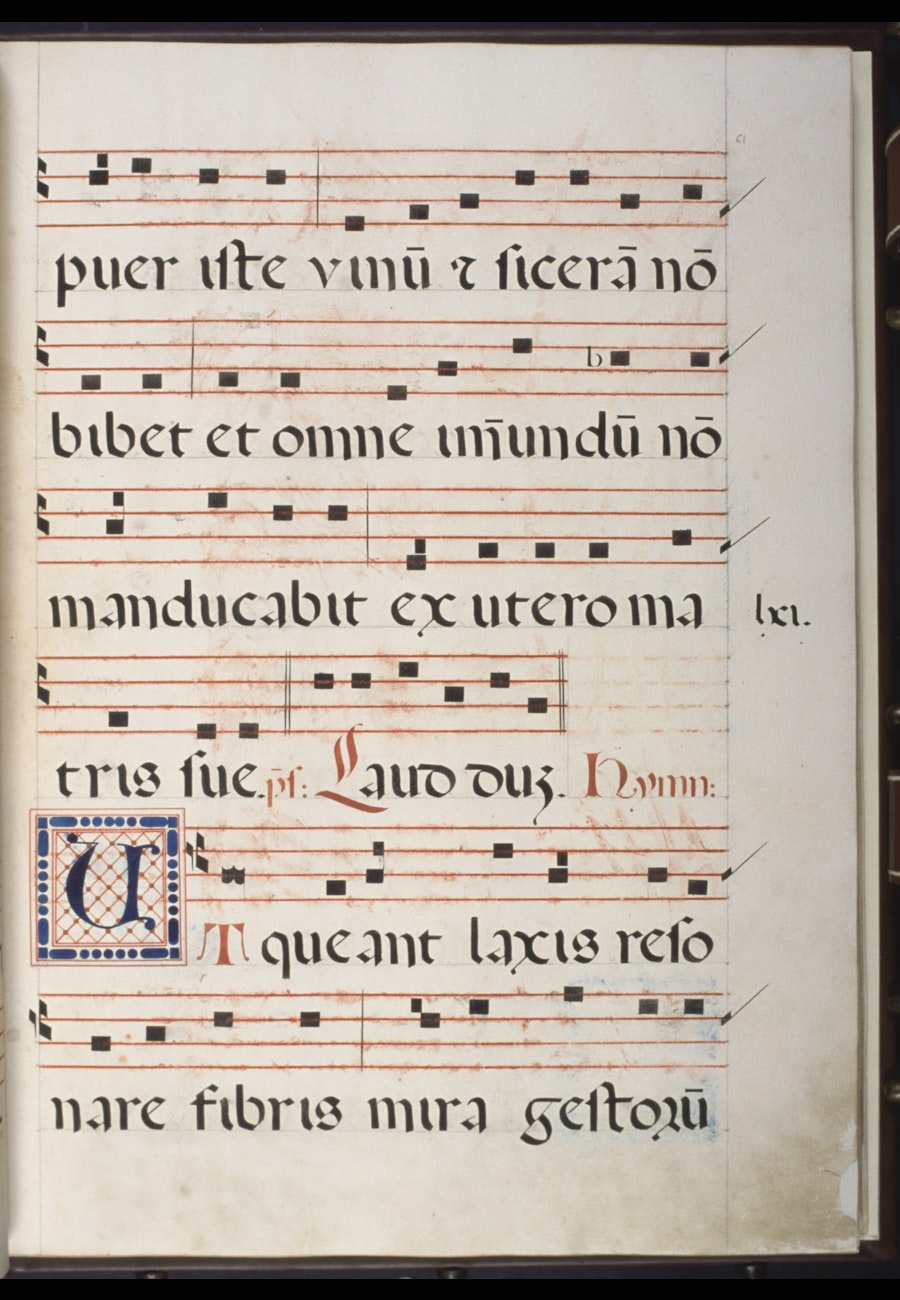 61
puer iſte vinū ⁊ ſicerā nō
b
bibet et omne im̄undū nō
manducabit ex utero ma
lxi.
tris ſue. p̄ſ: Laud duꝫ. Hymn:
UT queant laxis reſo
nare fibris mira geſtoꝝū